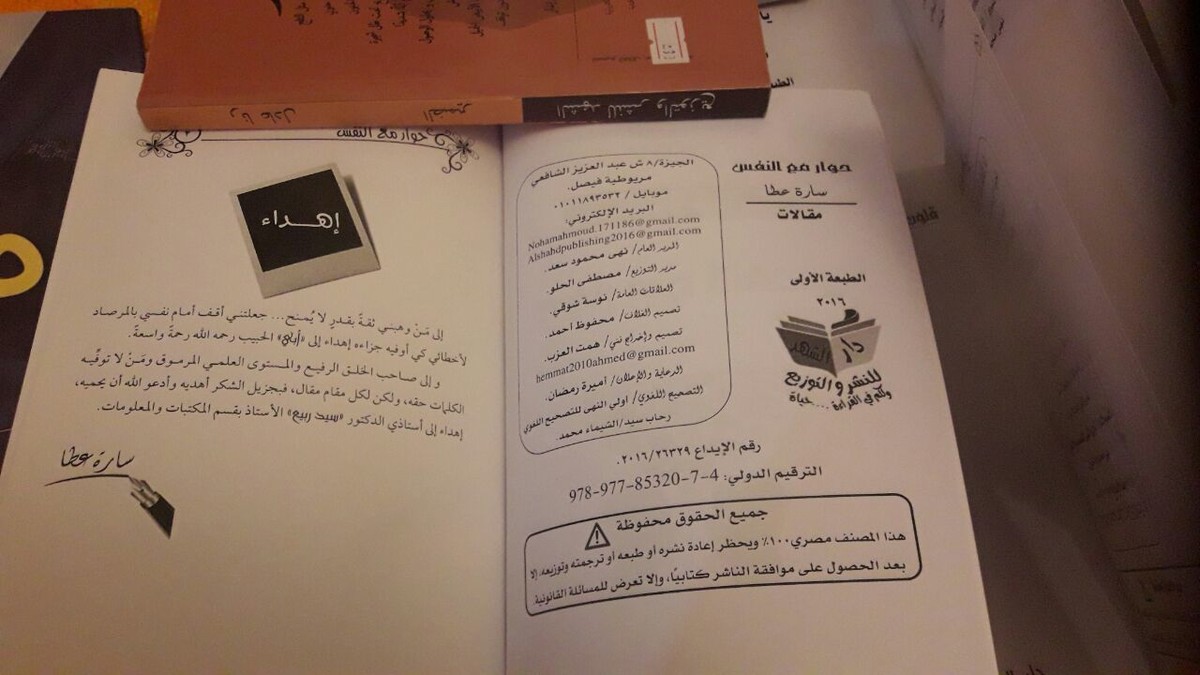 حوار مع النفس
سارة عطا
مقالات
الطبعة الأولى
٢٠١٦
دار الشهد
للنشر والتوزيع
ولكم في القراءة .... حياة
الجيزة/ ٨ ش عبد العزيز الشافعي
مريوطية فيصل.
موبايل / ٠١٠١١٨٩٣٥٣٢
البريد الإلكتروني:
Nohamahmoud.171186@gmail.com
Alshahdpublishing2016@gmail.com
المدير العام/ نهى محمود سعد.
مدير التوزيع/ مصطفى الحلو.
العلاقات العامة/ نوسة شوقي.
تصميم الغلاف/ محفوظ أحمد.
تصميم وإخراج فني/ همت العزب.
hemmat2010ahmed@gmail.com
الدعاية والإعلان/ أميرة رمضان.
التصحيح اللغوي/ أولي النهى للتصحيح اللغوي
رحاب سيد/الشيماء محمد.
رقم الإيداع ٢٠١٦/٢٦٣٢٩.
الترقيم الدولي: 4-7-85320-977-978
جميع الحقوق محفوظة
هذا المصنف مصري ١٠٠٪ ويحظر إعادة نشره أو طبعه أو ترجمته وتوزيعه، إلا
بعد الحصول على موافقة الناشر كتابيًا، وإلا تعرض للمسائلة القانونية.
حوار مع النفس
إهداء
إلى مَنْ وهبني ثقةً بقدرٍ لا يُمنح... جعلتني أقف أمام نفسي بالمرصاد
لأخطائي كي أوفيه جزاءه إهداء إلى «أبي» الحبيب رحمه الله رحمةً واسعةً.
و إلى صاحب الخلق الرفيع والمستوى العلمي المرموق ومَنْ لا توفِّيه
الكلمات حقه، ولكن لكل مقام مقال، فبجزيل الشكر أهديه وأدعو الله أن يحميه،
إهداء إلى أستاذي الدكتور «سيد ربيع» الأستاذ بقسم المكتبات والمعلومات.
سارة عطا
الشهد للنشر والتوزيع
رنا عادل